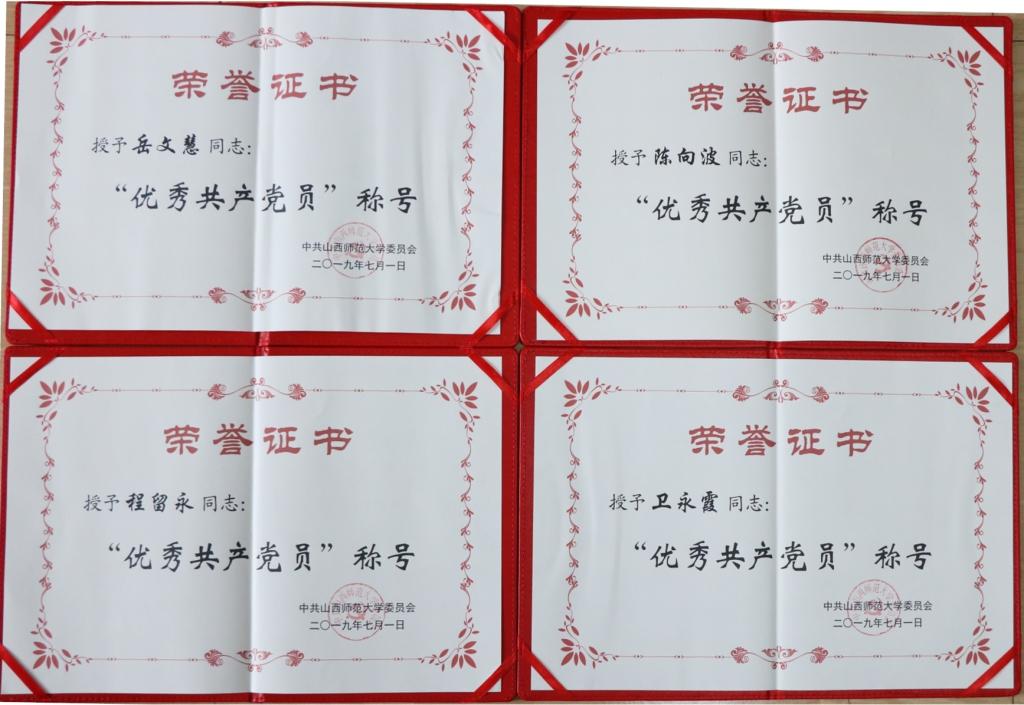 荣誉证书
授予岳文慧同志：
“优秀共产党员”称号
中共山西师范大学委员会
二〇一九年七月一日
荣誉证书
授予陈向波同志：
“优秀共产党员”称号
中共山西师范大学委员会
二〇一九年七月一日
荣誉证书
授予程留永同志：
“优秀共产党员”称号
中共山西师范大学委员会
二〇一九年七月一日
荣誉证书
授予卫永霞同志：
“优秀共产党员”称号
中共山西师范大学委员会
二〇一九年七月一日